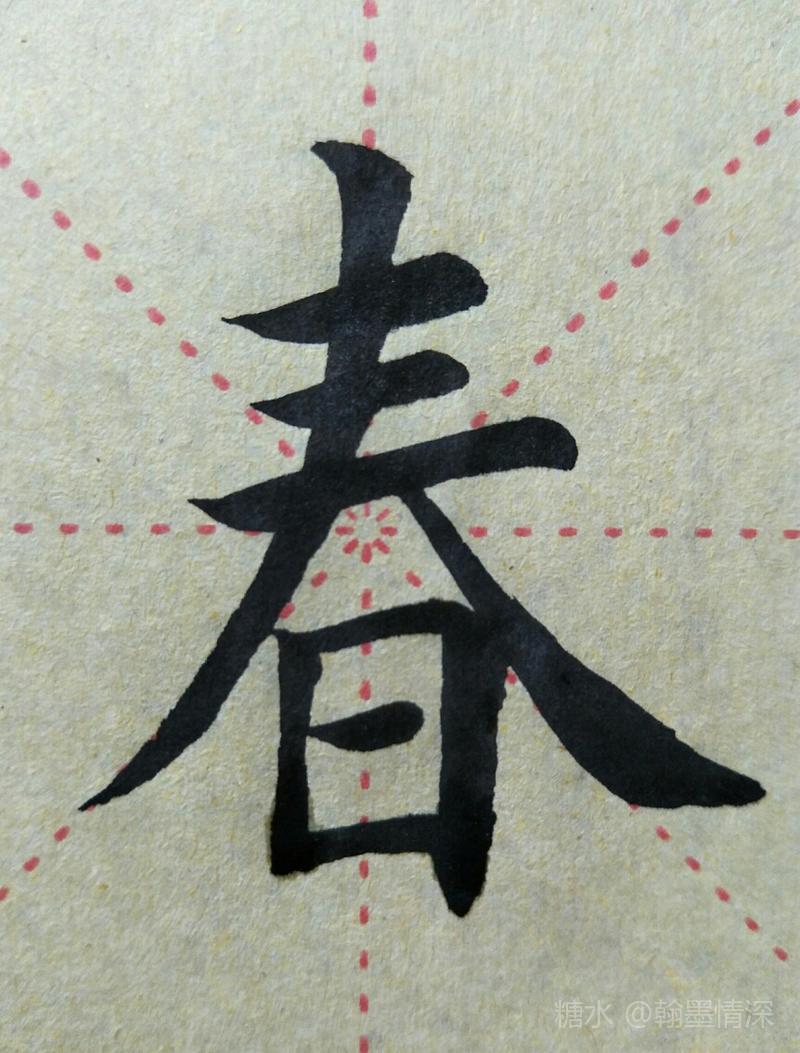 春
糖水 @翰墨情深